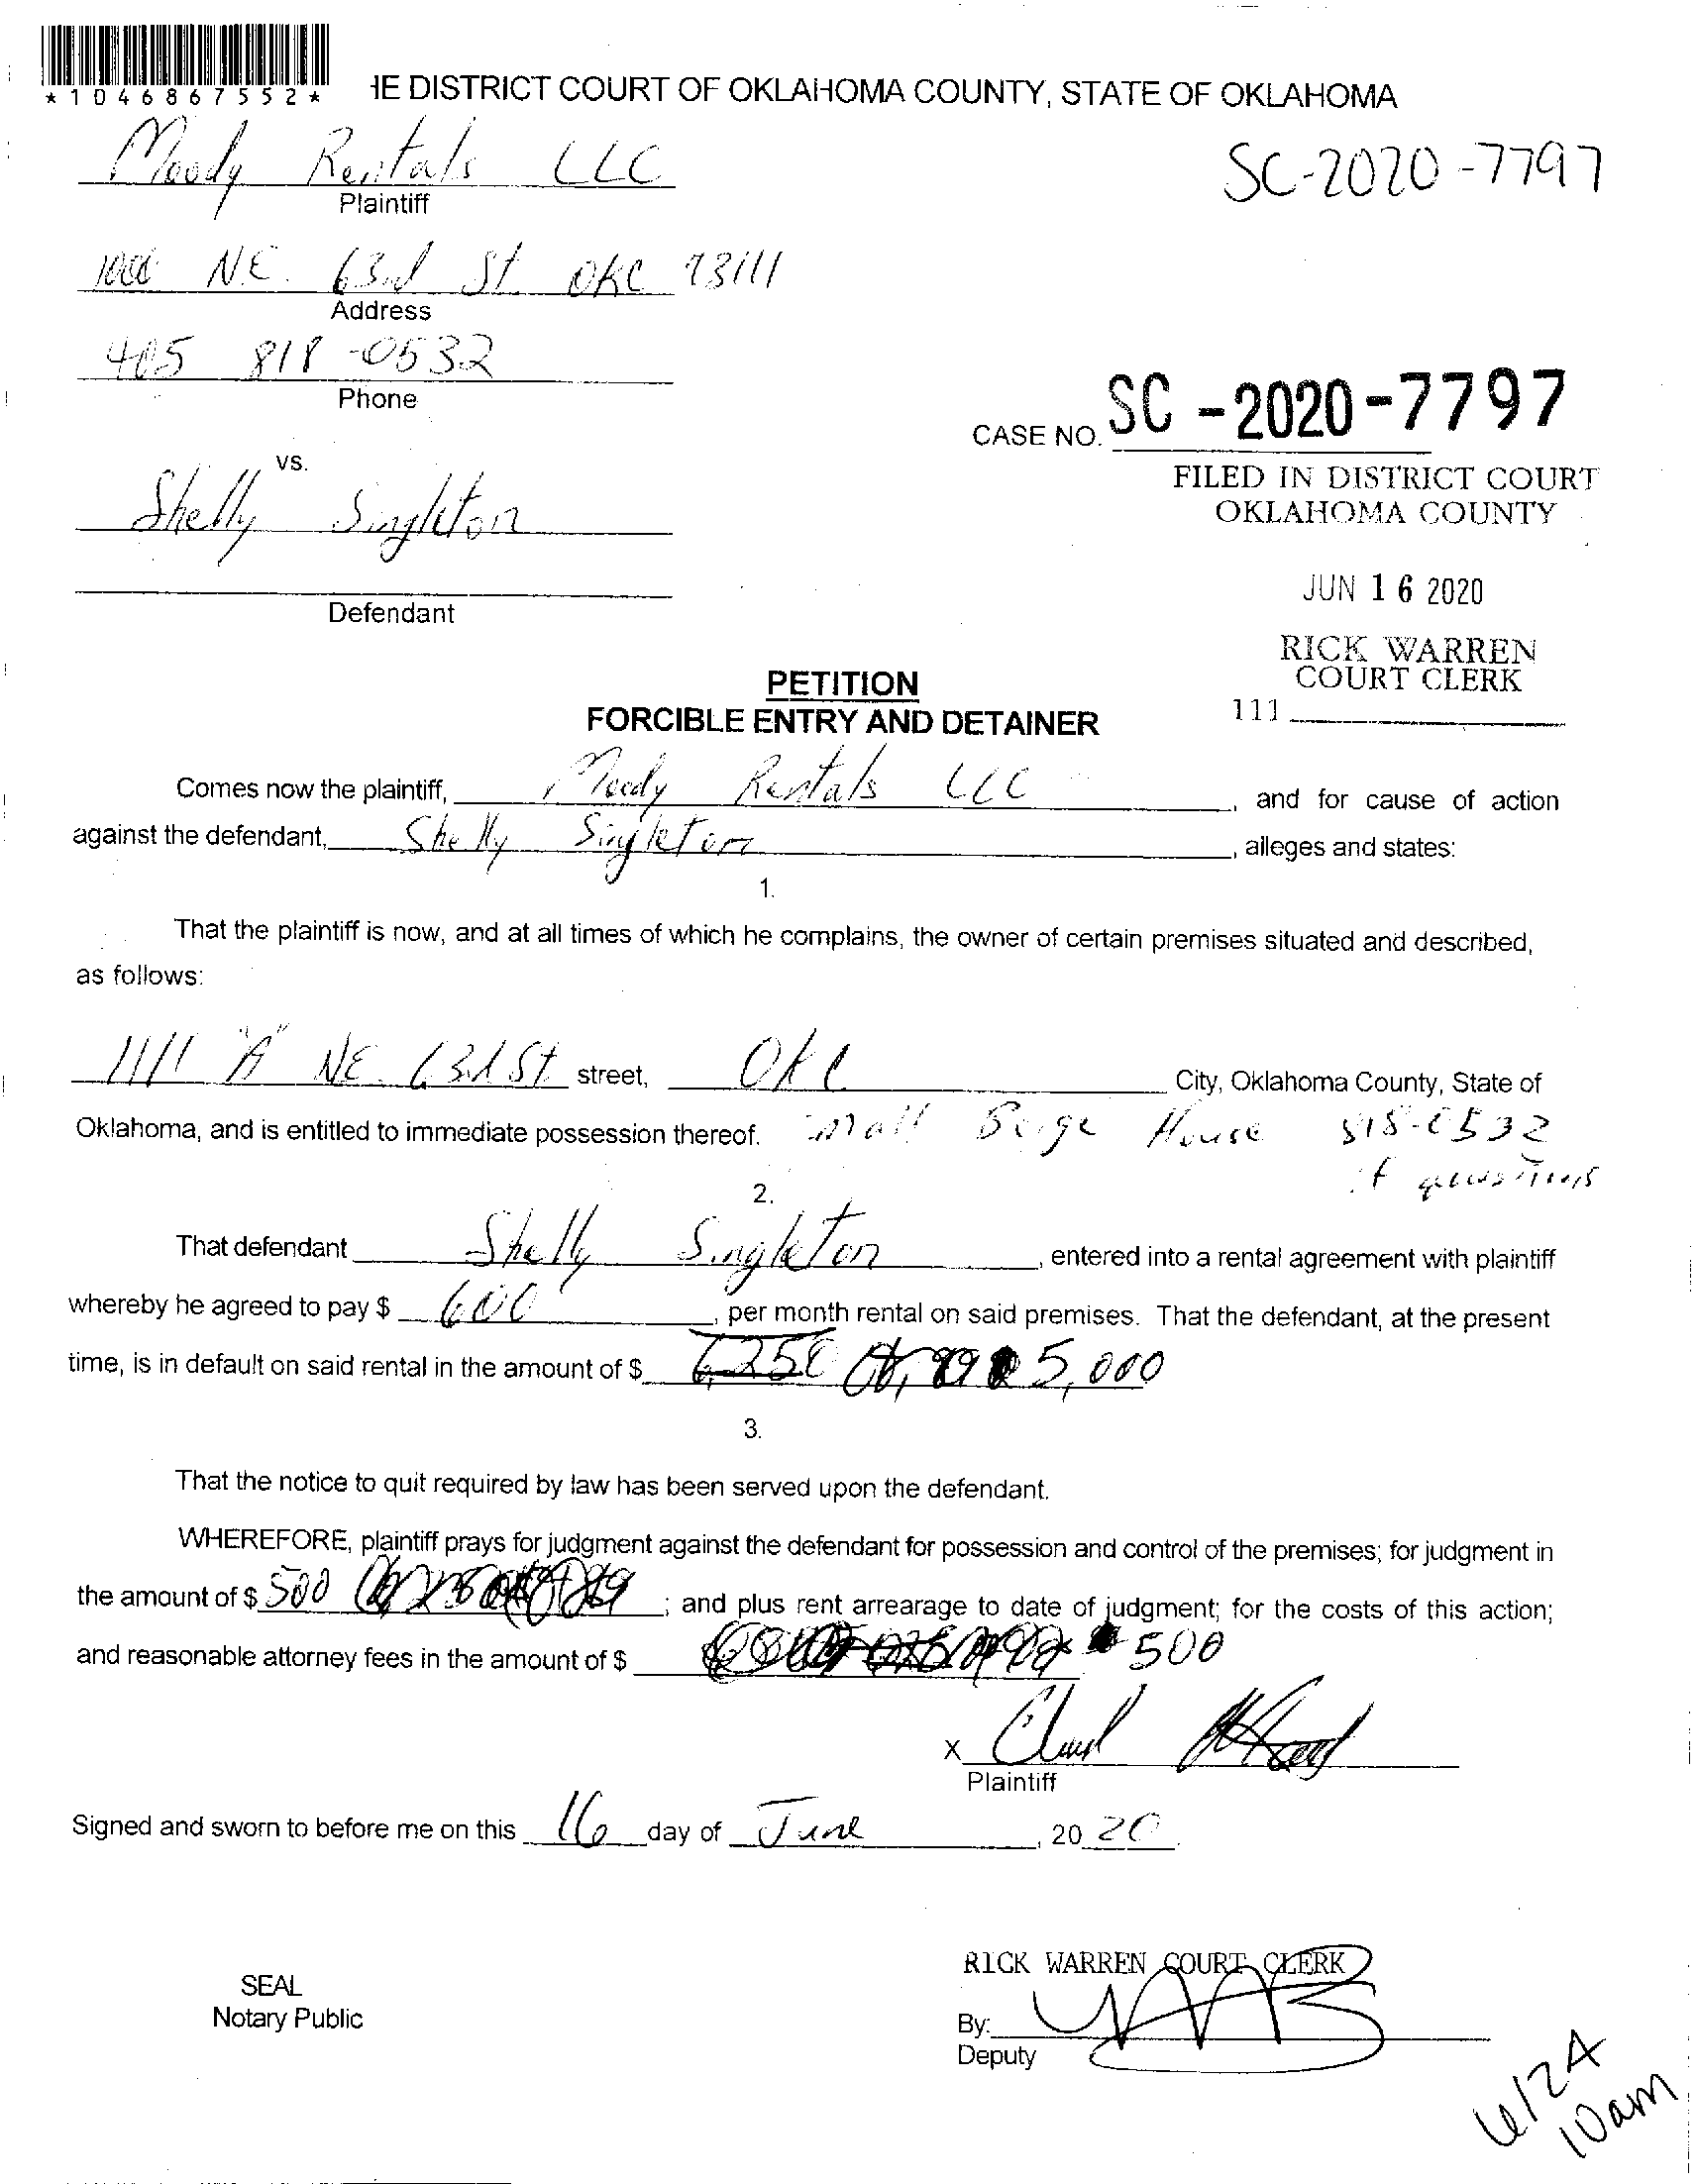 *1046867552*
IE DISTRICT COURT OF OKLAHOMA COUNTY, STATE OF OKLAHOMA
Moody Rentals LLC
SC-2020-7797
Plaintiff
N.E. 63rd St. OKC 73111
Address
405 818-0532
Phone
CASE NO. SC-2020-7797
vs.
FILED IN DISTRICT COURT
OKLAHOMA COUNTY
Shelly Singleton
JUN 16 2020
Defendant
RICK WARREN
COURT CLERK
111
PETITION
FORCIBLE ENTRY AND DETAINER
Comes now the plaintiff, Moody Rentals LLC, and for cause of action
against the defendant, Shelly Singleton, alleges and states:
1.
That the plaintiff is now, and at all times of which he complains, the owner of certain premises situated and described,
as follows:
1111 "A" NE. 63rd St street, OKC City, Oklahoma County, State of
Oklahoma, and is entitled to immediate possession thereof. small Beige House 818-0532
if questions
2.
That defendant Shelly Singleton, entered into a rental agreement with plaintiff
whereby he agreed to pay $ 600, per month rental on said premises. That the defendant, at the present
time, is in default on said rental in the amount of $ 5,000
3.
That the notice to quit required by law has been served upon the defendant.
WHEREFORE, plaintiff prays for judgment against the defendant for possession and control of the premises; for judgment in
the amount of $ 500; and plus rent arrearage to date of judgment; for the costs of this action;
and reasonable attorney fees in the amount of $ 500
X
Plaintiff
Signed and sworn to before me on this 16 day of June, 20 20.
RICK WARREN COURT CLERK
SEAL
Notary Public
By:
Deputy
6/24
10am